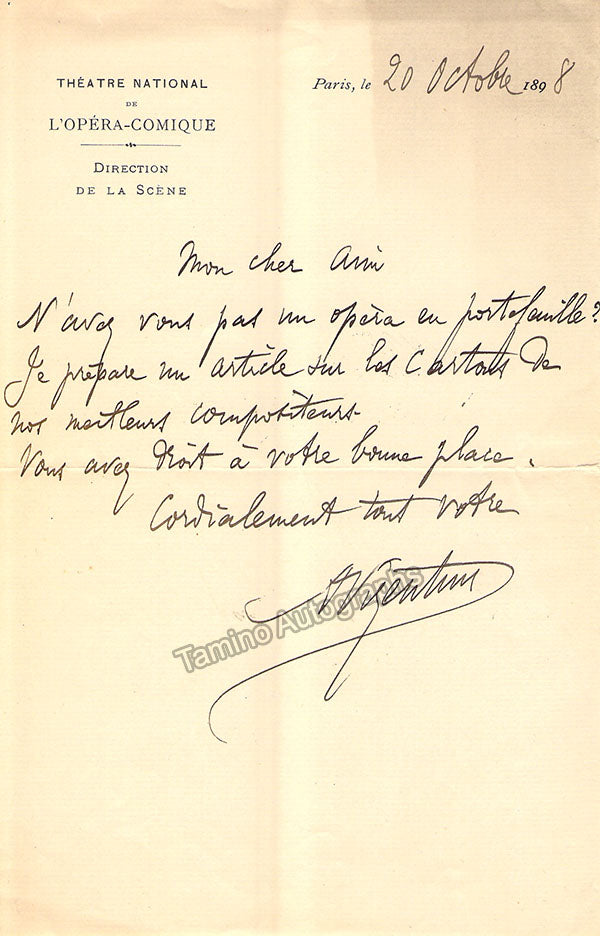 THÉATRE NATIONAL
DE
L'OPÉRA-COMIQUE
DIRECTION
DE LA SCÈNE
Paris, le 20 Octobre 1898
Mon cher Ami
N'avez vous pas un opéra en portefeuille?
Je prépare un article sur les Cartons de
nos meilleurs compositeurs.
Vous avez droit à votre bonne place.
Cordialement tout votre
Vizentini
Tamino Autographs